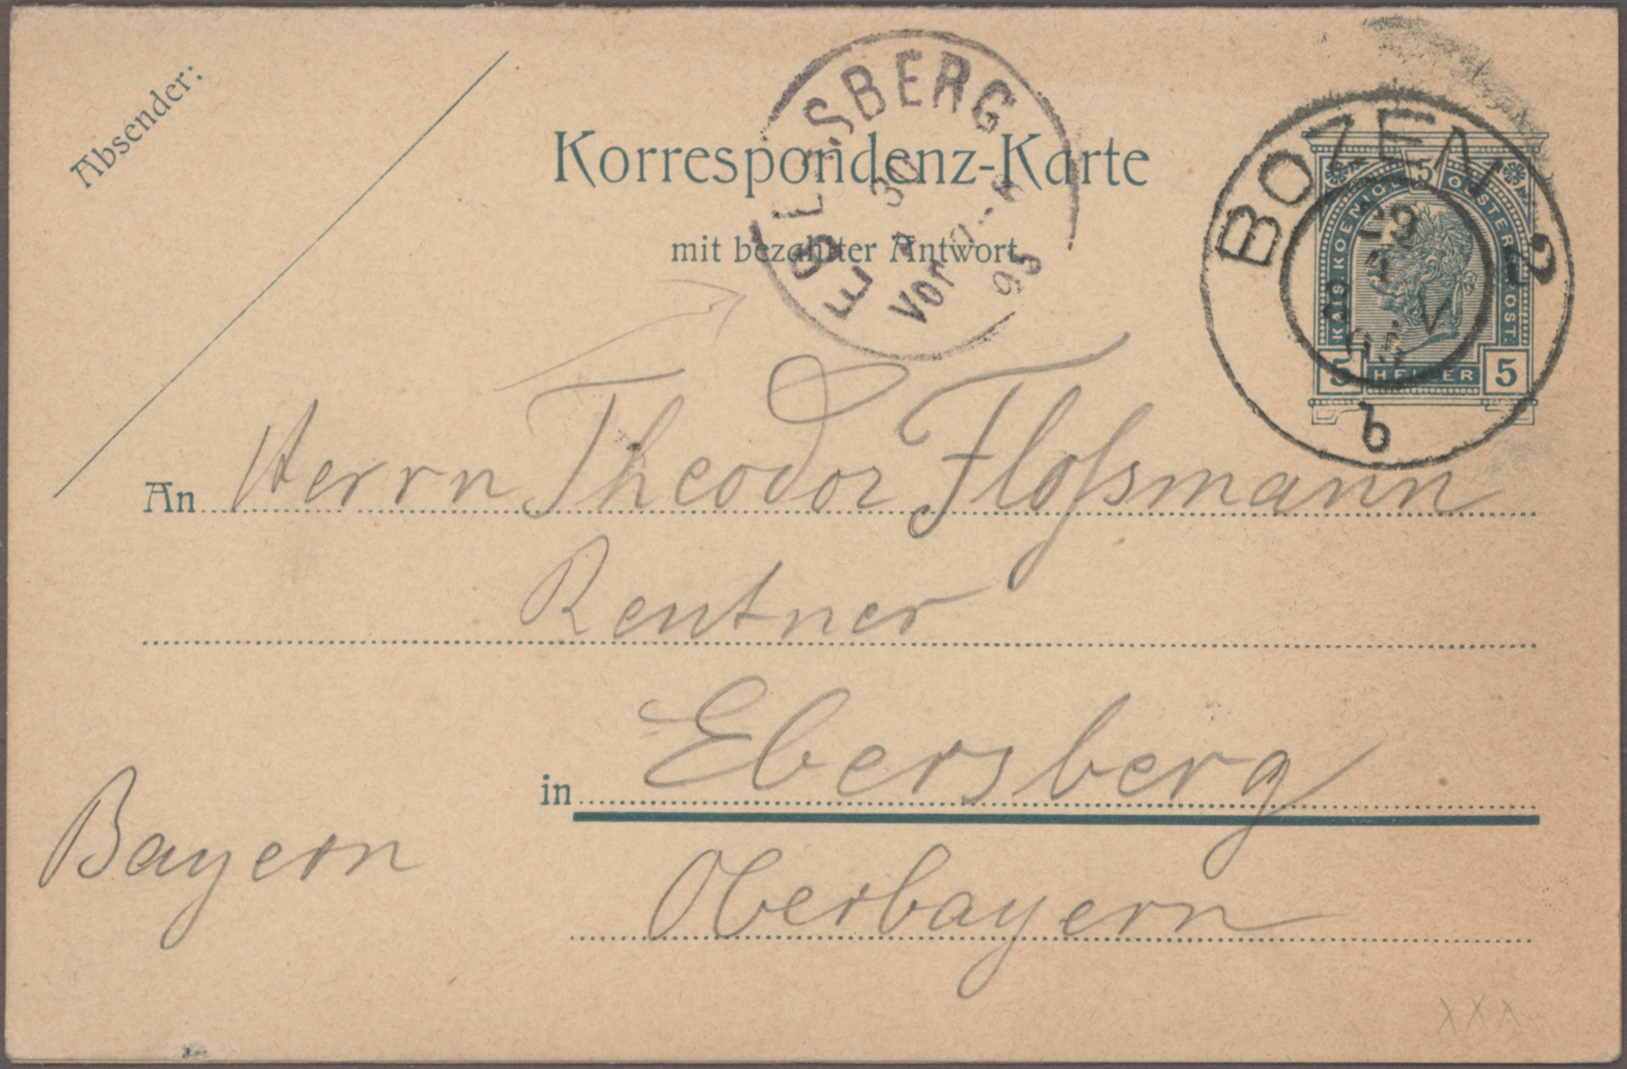 Absender:
Korrespondenz-Karte
mit bezahlter Antwort.
EBERSBERG
30
Vor
BOZEN 2
29
b
5
KAIS. KOENIGL. OESTERR. POST.
5 HELLER 5
An Herrn Theodor Floſsmann
Rentner
in Ebersberg
Bayern
Oberbayern
XXX